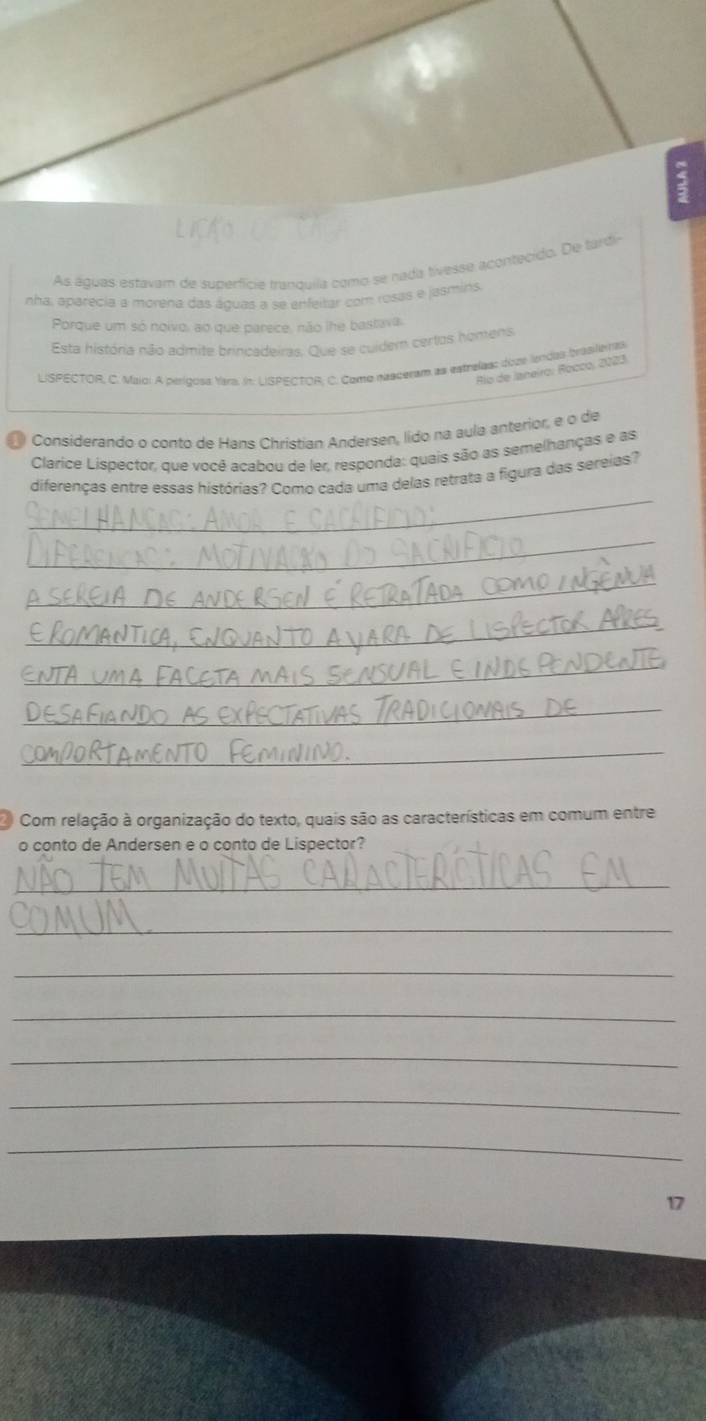 AULA 2
LIÇÃO DE CASA
As águas estavam de superfície tranquila como se nada tivesse acontecido. De tardi-
nha, aparecia a morena das águas a se enfeitar com rosas e jasmins.
Porque um só noivo, ao que parece, não lhe bastava.
Esta história não admite brincadeiras. Que se cuidem certos homens.
LISPECTOR, C. Maio: A perigosa Yara. In: LISPECTOR, C. Como nasceram as estrelas: doze lendas brasileiras.
Rio de Janeiro: Rocco, 2023.
1 Considerando o conto de Hans Christian Andersen, lido na aula anterior, e o de
Clarice Lispector, que você acabou de ler, responda: quais são as semelhanças e as
diferenças entre essas histórias? Como cada uma delas retrata a figura das sereias?
SEMELHANÇAS: AMOR E SACRIFICIO;
DIFERENÇAS: MOTIVAÇÃO DO SACRIFICIO
A SEREIA DE ANDERSEN É RETRATADA COMO INGÊNUA
E ROMANTICA, ENQUANTO A YARA DE LISPECTOR APRES
ENTA UMA FACETA MAIS SENSUAL E INDEPENDENTE,
DESAFIANDO AS EXPECTATIVAS TRADICIONAIS DE
COMPORTAMENTO FEMININO.
2 Com relação à organização do texto, quais são as características em comum entre
o conto de Andersen e o conto de Lispector?
NÃO TEM MUITAS CARACTERÍCTICAS EM
COMUM.
17